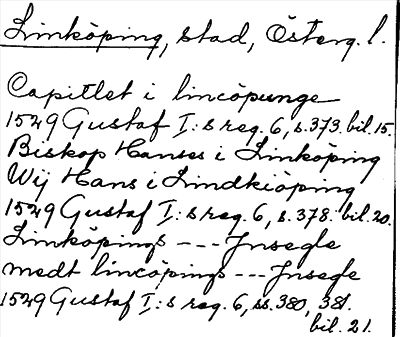 Linköping, stad, Österg. l.
Capitlet i lincöpunge
1529 Gustaf I:s reg. 6, s. 373. bil. 15.
Biskop Hanses i Linköping
Wij Hans i Lindkiöping
1529 Gustaf I:s reg. 6, s. 378. bil. 20.
Linköpings --- Jnsegle
medt lincöpings --- Jnsegle
1529 Gustaf I:s reg. 6, ss. 380, 381.
bil. 21.